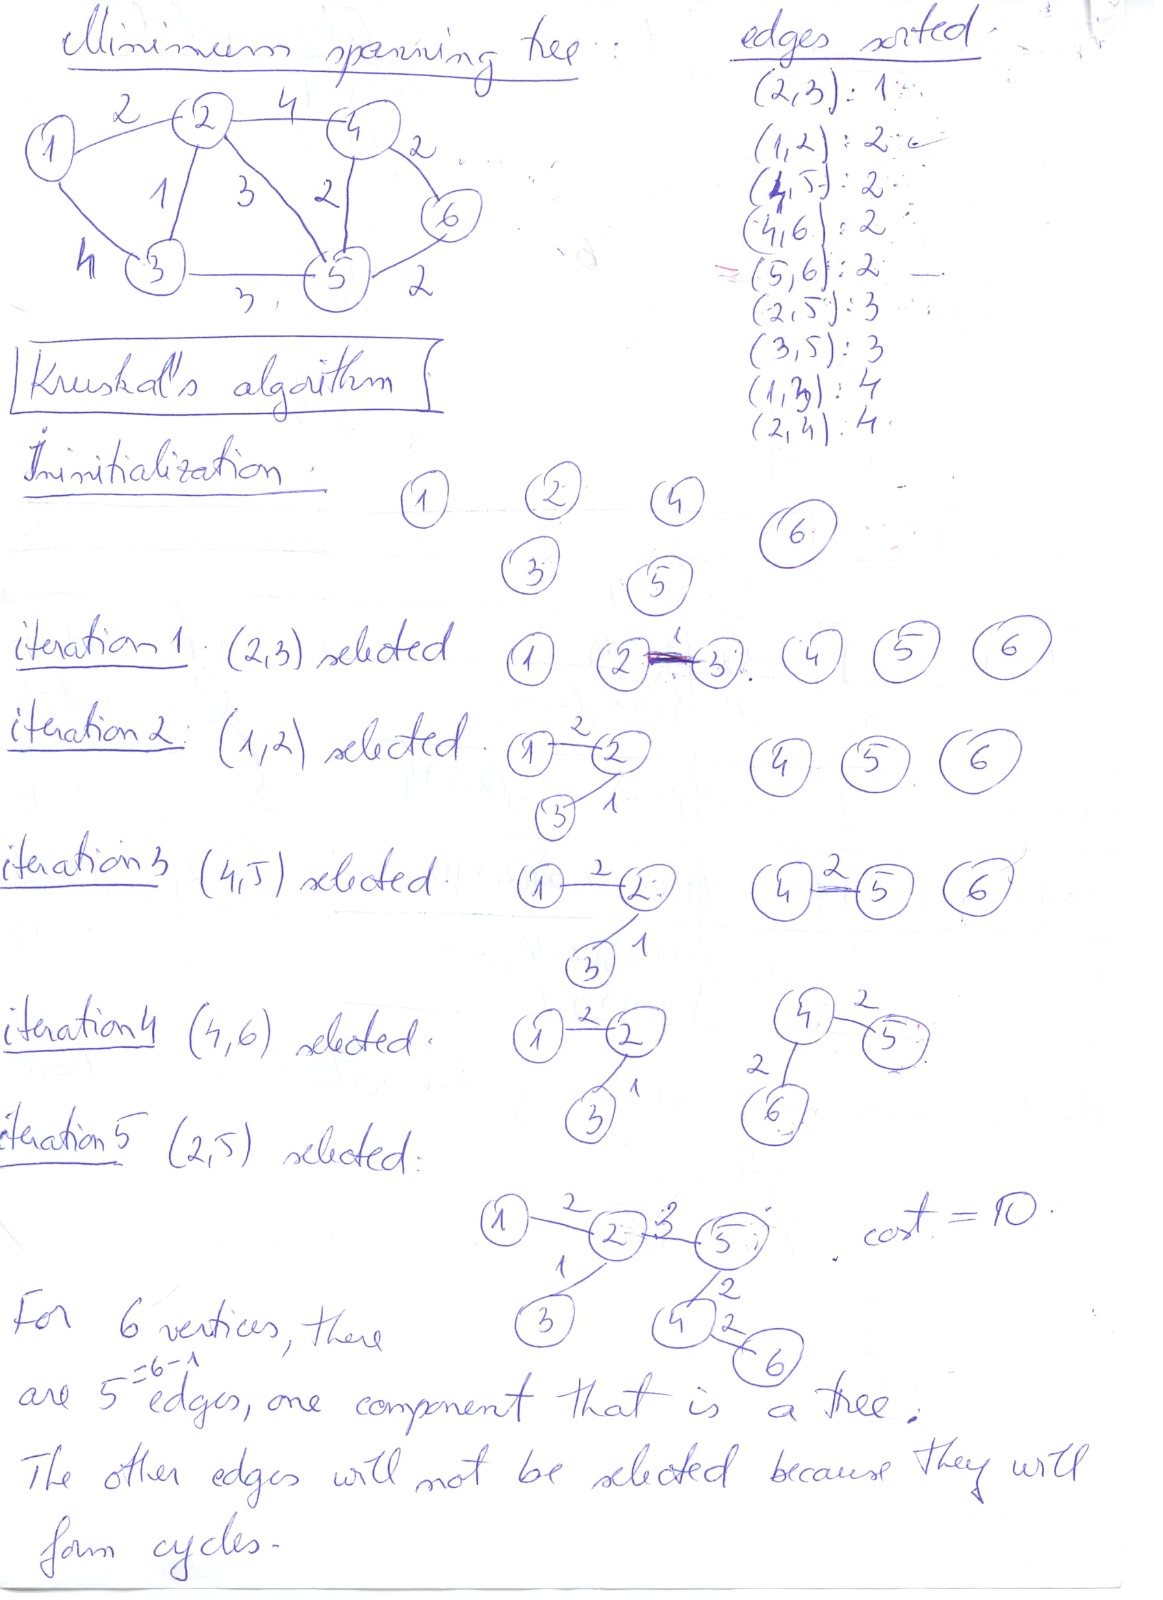 Minimum spanning tree :
edges sorted
(2,3): 1
(1,2): 2
(4,5): 2
(4,6): 2
(5,6): 2
(2,5): 3
(3,5): 3
(1,3): 4
(2,4): 4
2 4
1 2 4
2
1 3 2
6
4 3 5
3 2
Kruskal's algorithm
Ininitialization
1 2 4
6
3 5
iteration 1 (2,3) selected 1 2 1 3 4 5 6
iteration 2: (1,2) selected 1 2 2 4 5 6
3 1
iteration 3 (4,5) selected 1 2 2 4 2 5 6
3 1
iteration 4 (4,6) selected 1 2 2 4 2 5
3 1 2 6
iteration 5 (2,5) selected:
1 2 2 3 5 cost = 10
1 2
3 4 2 6
For 6 vertices, there
are 5 =6-1 edges, one component that is a tree.
The other edges will not be selected because they will
form cycles.